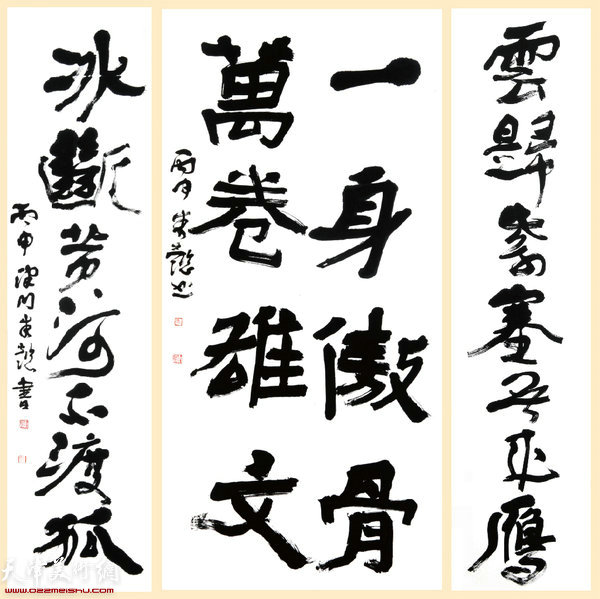 雲歸紫塞无來鴈
一身傲骨
萬卷雄文
丙申
冰斷黄河不渡狐
丙申 津門 書
天津美術網
www.022meishu.com